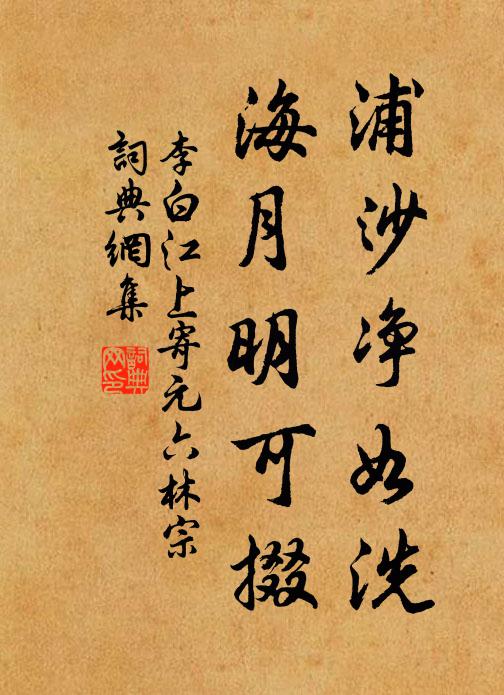 浦沙净如洗
海月明可掇
李白江上寄元六林宗
詞典網集
詞典網印